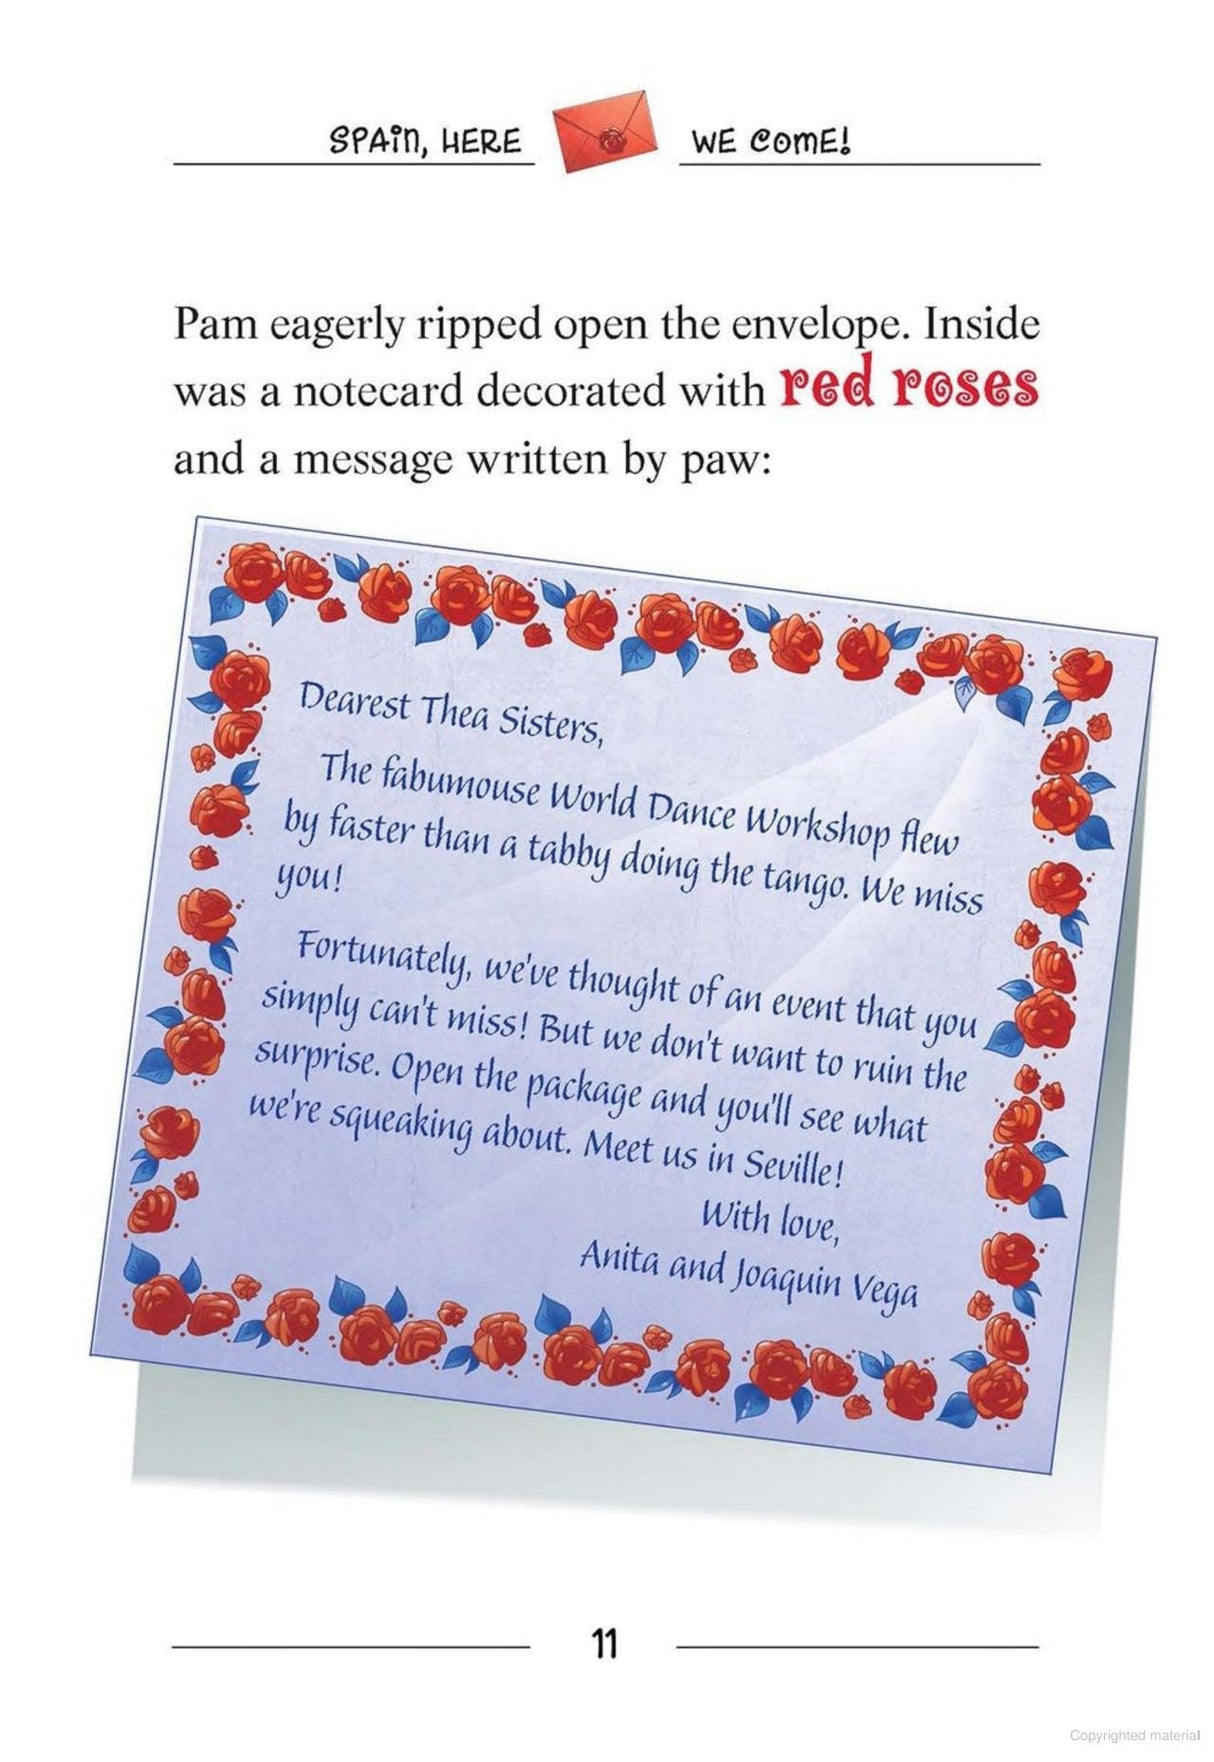 SPAIN, HERE WE COME!
Pam eagerly ripped open the envelope. Inside
was a notecard decorated with red roses
and a message written by paw:
Dearest Thea Sisters,
The fabumouse World Dance Workshop flew
by faster than a tabby doing the tango. We miss
you!
Fortunately, we've thought of an event that you
simply can't miss! But we don't want to ruin the
surprise. Open the package and you'll see what
we're squeaking about. Meet us in Seville!
With love,
Anita and Joaquin Vega
11
Copyrighted material